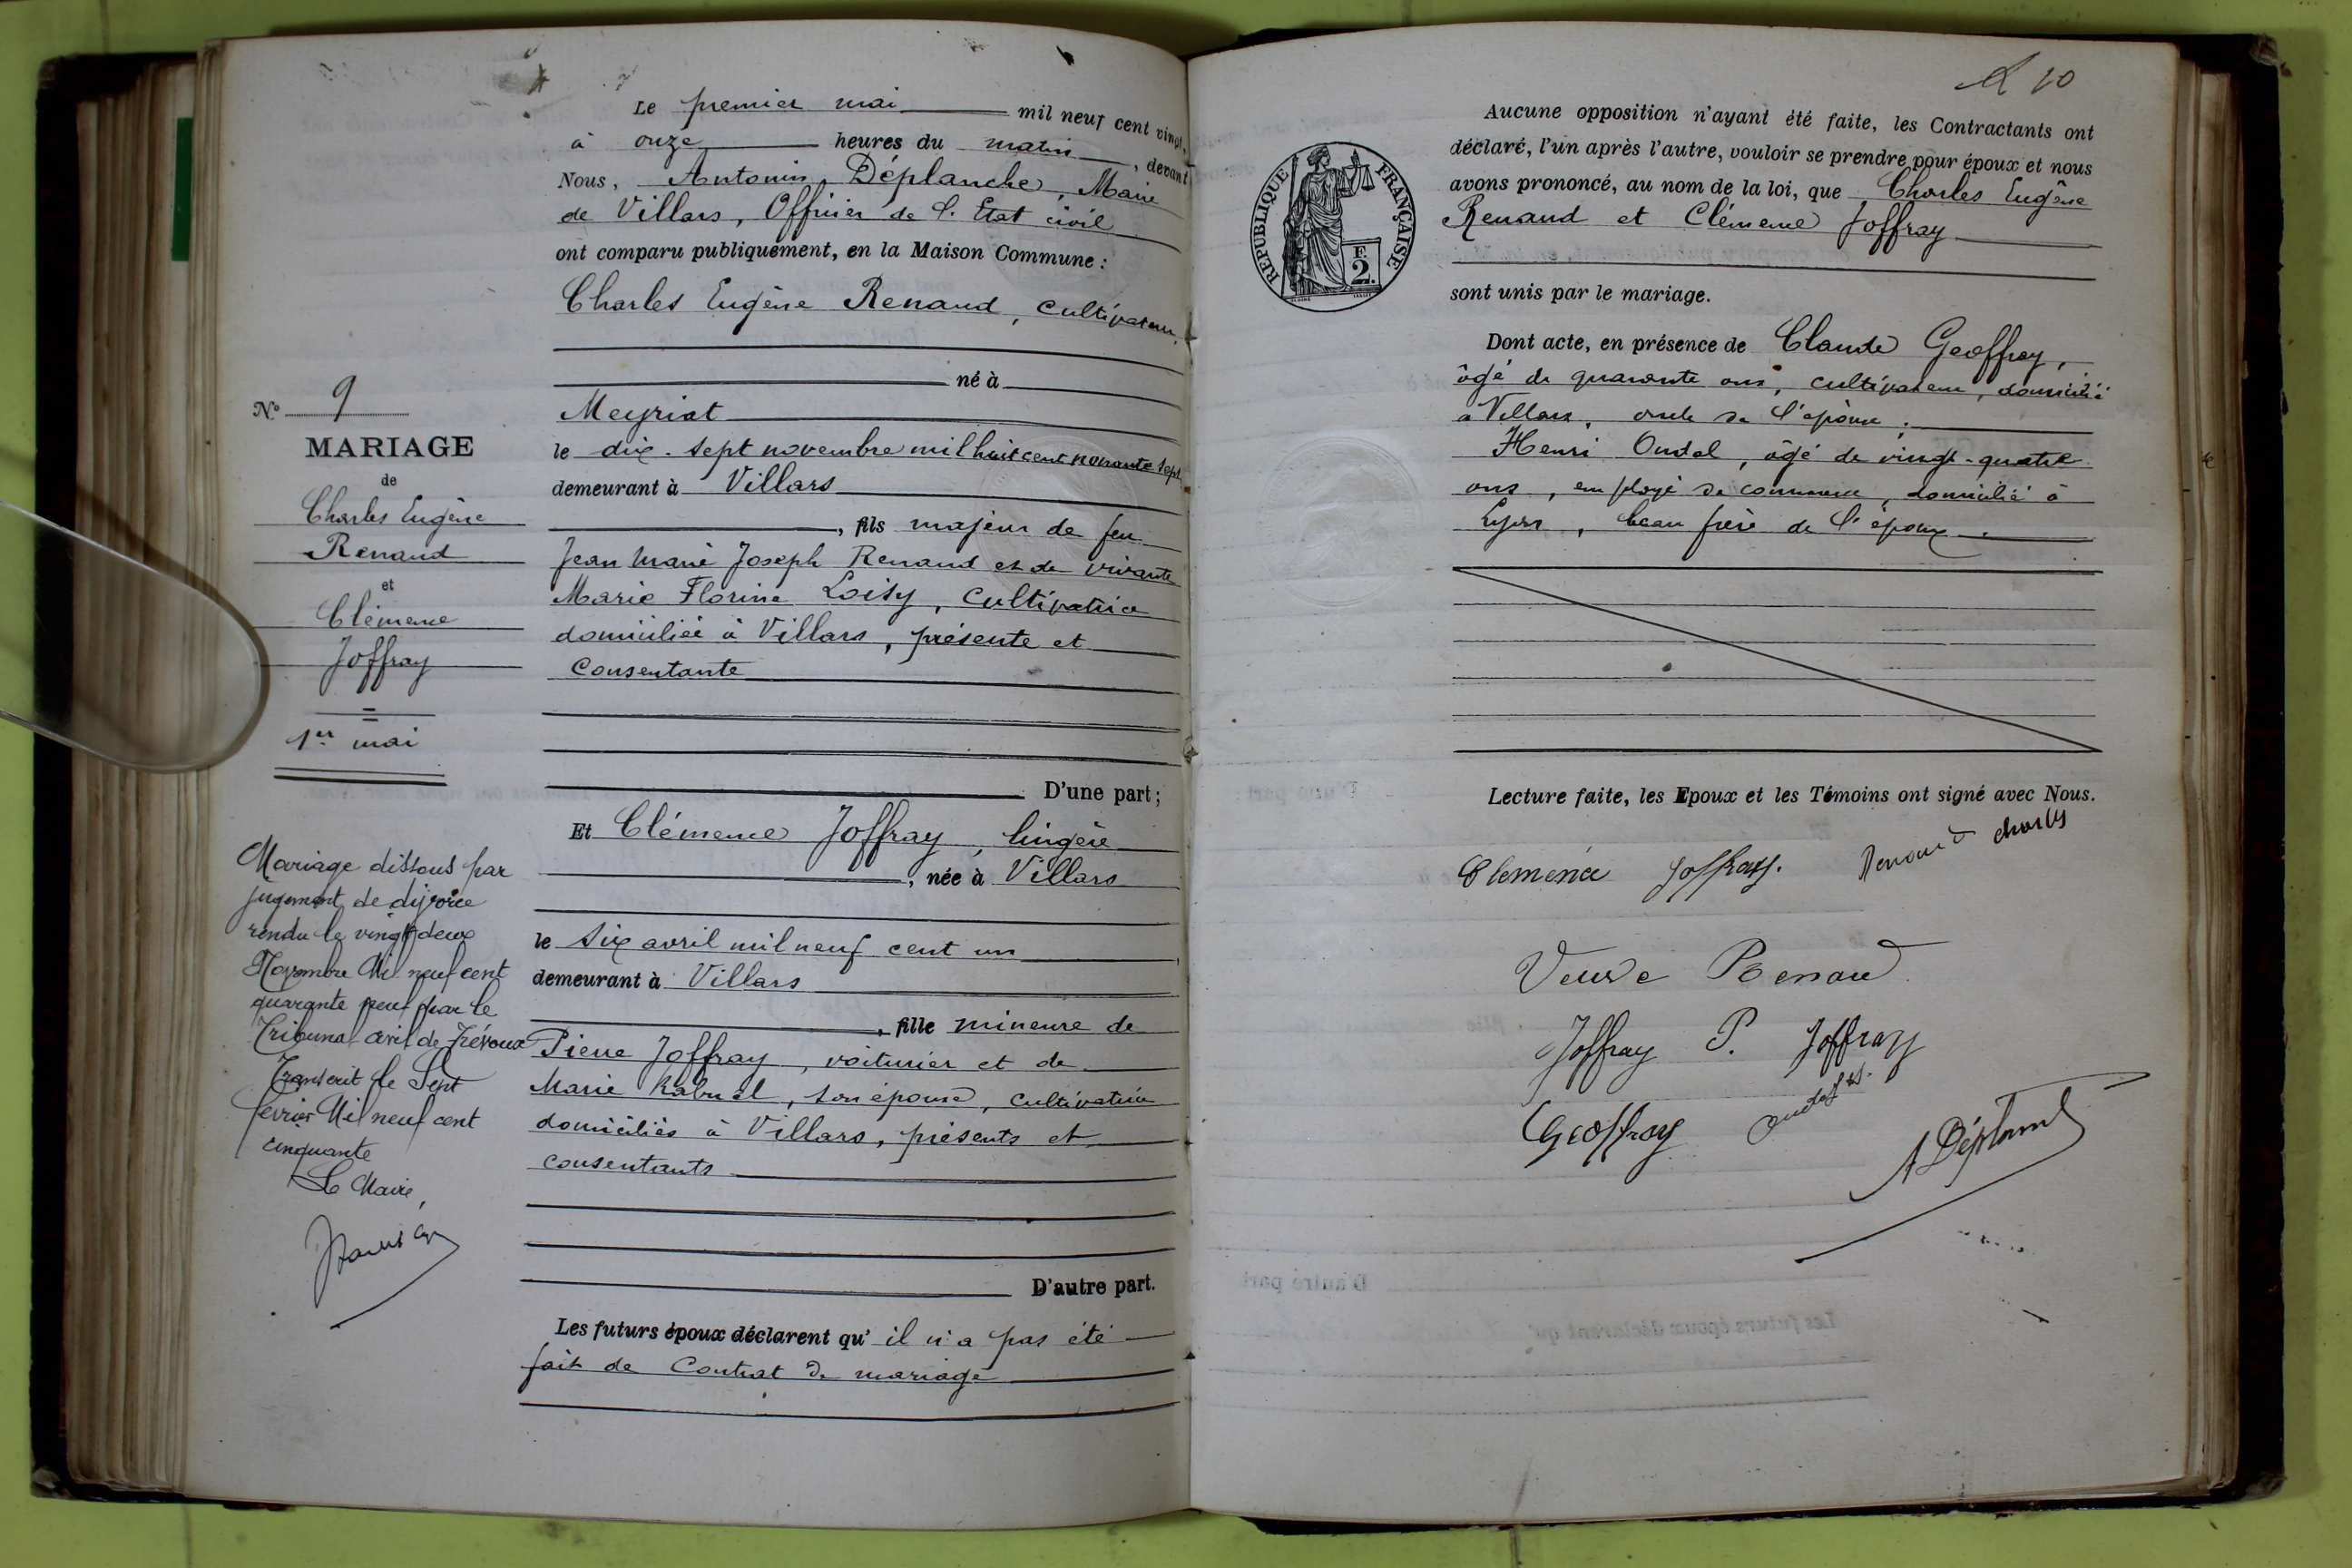 Le premier mai mil neuf cent vingt,
à onze heures du matin, devant
Nous, Antonin Déplanche, Maire
de Villars, Officier de l'Etat civil
ont comparu publiquement, en la Maison Commune :
Charles Eugène Renaud, cultivateur,
né à
Meyriat
le dix-sept novembre mil huit cent nonante sept
demeurant à Villars
, fils majeur de feu
Jean Marie Joseph Renaud et de vivante
Marie Florine Loisy, cultivatrice
domiciliée à Villars, présente et
consentante
D'une part ;
Et Clémence Joffray, lingère
, née à Villars
le six avril mil neuf cent un
demeurant à Villars
, fille mineure de
Pierre Joffray, voiturier et de
Marie Rabuel, son épouse, cultivatrice
domiciliés à Villars, présents et
consentants
D'autre part.
Les futurs époux déclarent qu'il n'a pas été
fait de contrat de mariage
N° 9
MARIAGE
de
Charles Eugène
Renaud
et
Clémence
Joffray
1er mai
Mariage dissous par
jugement de divorce
rendu le vingt deux
Novembre Mil neuf cent
quarante neuf par le
Tribunal civil de Trévoux
Transcrit le Sept
février Mil neuf cent
cinquante
Le Maire,
10
RÉPUBLIQUE FRANÇAISE
F.
2.
Aucune opposition n'ayant été faite, les Contractants ont
déclaré, l'un après l'autre, vouloir se prendre pour époux et nous
avons prononcé, au nom de la loi, que Charles Eugène
Renaud et Clémence Joffray
sont unis par le mariage.
Dont acte, en présence de Claude Geoffray,
âgé de quarante ans, cultivateur, domicilié
à Villars, oncle de l'épouse.
Henri Oudol, âgé de vingt-quatre
ans, employé de commerce, domicilié à
Lyon, beau frère de l'époux.
Lecture faite, les Epoux et les Témoins ont signé avec Nous.
Clemence Joffray. Renaud charles
Veuve Renaud
Joffray P. Joffray
Geoffray
A Déplanche